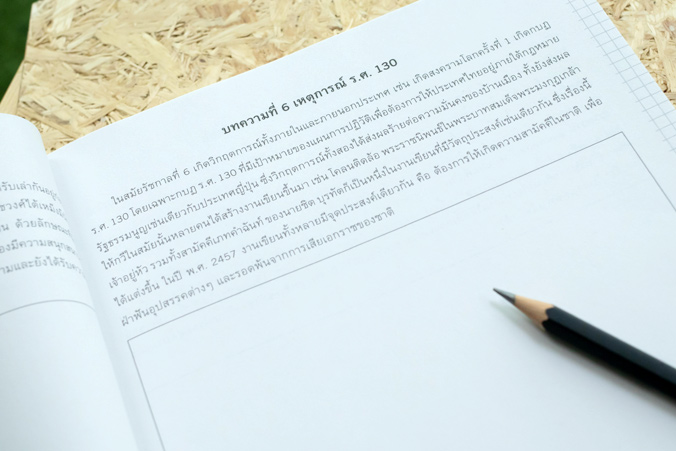 บทความที่ 6 เหตุการณ์ ร.ศ. 130
ในสมัยรัชกาลที่ 6 เกิดวิกฤตการณ์ทั้งภายในและภายนอกประเทศ เช่น เกิดสงครามโลกครั้งที่ 1 เกิดกบฏ
ร.ศ. 130 โดยเฉพาะกบฏ ร.ศ. 130 ที่มีเป้าหมายของแผนการปฏิวัติเพื่อต้องการให้ประเทศไทยอยู่ภายใต้กฎหมาย
รัฐธรรมนูญเช่นเดียวกับประเทศญี่ปุ่น ซึ่งวิกฤตการณ์ทั้งสองได้ส่งผลร้ายต่อความมั่นคงของบ้านเมือง ทั้งยังส่งผล
ให้กวีในสมัยนั้นหลายคนได้สร้างงานเขียนขึ้นมา เช่น โคลนติดล้อ พระราชนิพนธ์ในพระบาทสมเด็จพระมงกุฎเกล้า
เจ้าอยู่หัว รวมทั้งสามัคคีเภทคำฉันท์ ของนายชิต บุรทัตก็เป็นหนึ่งในงานเขียนที่มีวัตถุประสงค์เช่นเดียวกัน ซึ่งเรื่องนี้
ได้แต่งขึ้น ในปี พ.ศ. 2457 งานเขียนทั้งหลายมีจุดประสงค์เดียวกัน คือ ต้องการให้เกิดความสามัคคีในชาติ เพื่อ
ฝ่าฟันอุปสรรคต่างๆ และรอดพ้นจากการเสียเอกราชของชาติ